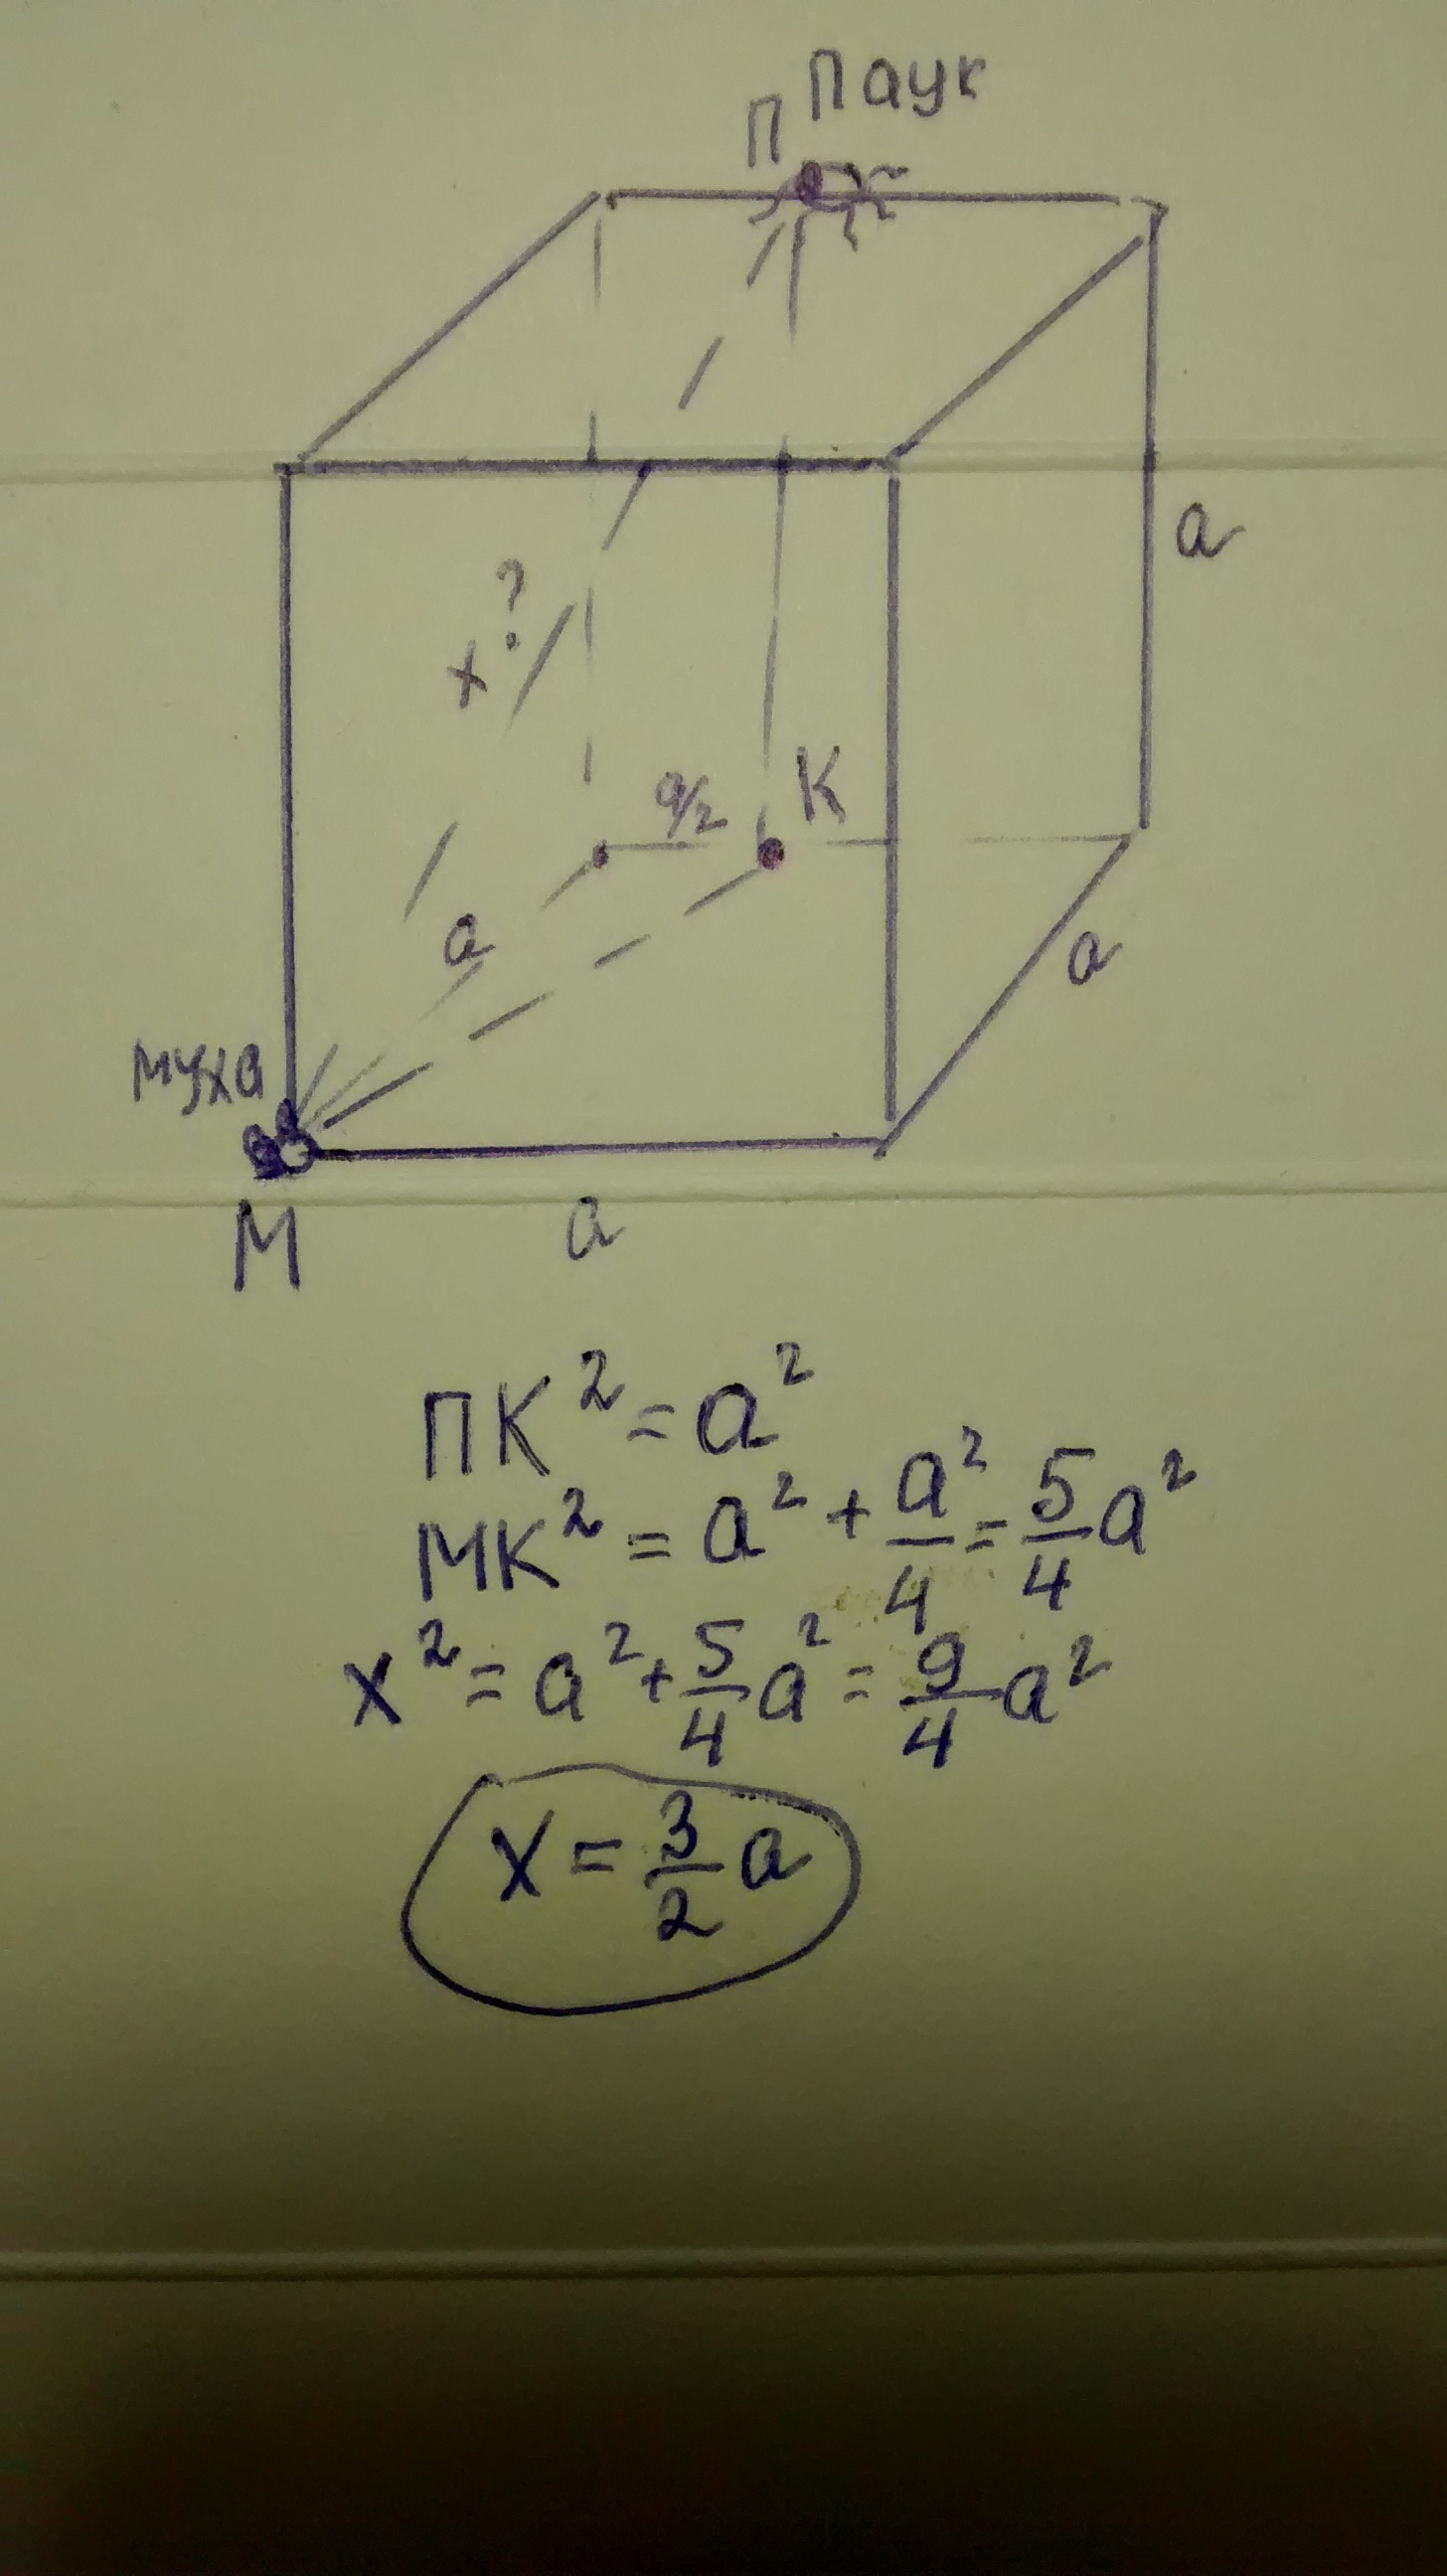 Паук
П
a
x?
a/2
K
a
a
муха
M
a
ПK² = a²
MK² = a² + a²/4 = 5/4 a²
x² = a² + 5/4 a² = 9/4 a²
x = 3/2 a